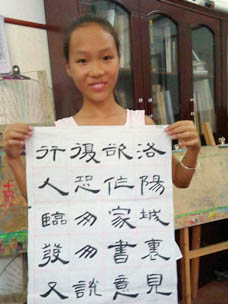 洛陽城裏見
欲作家書意
復恐匆匆說
行人臨發又